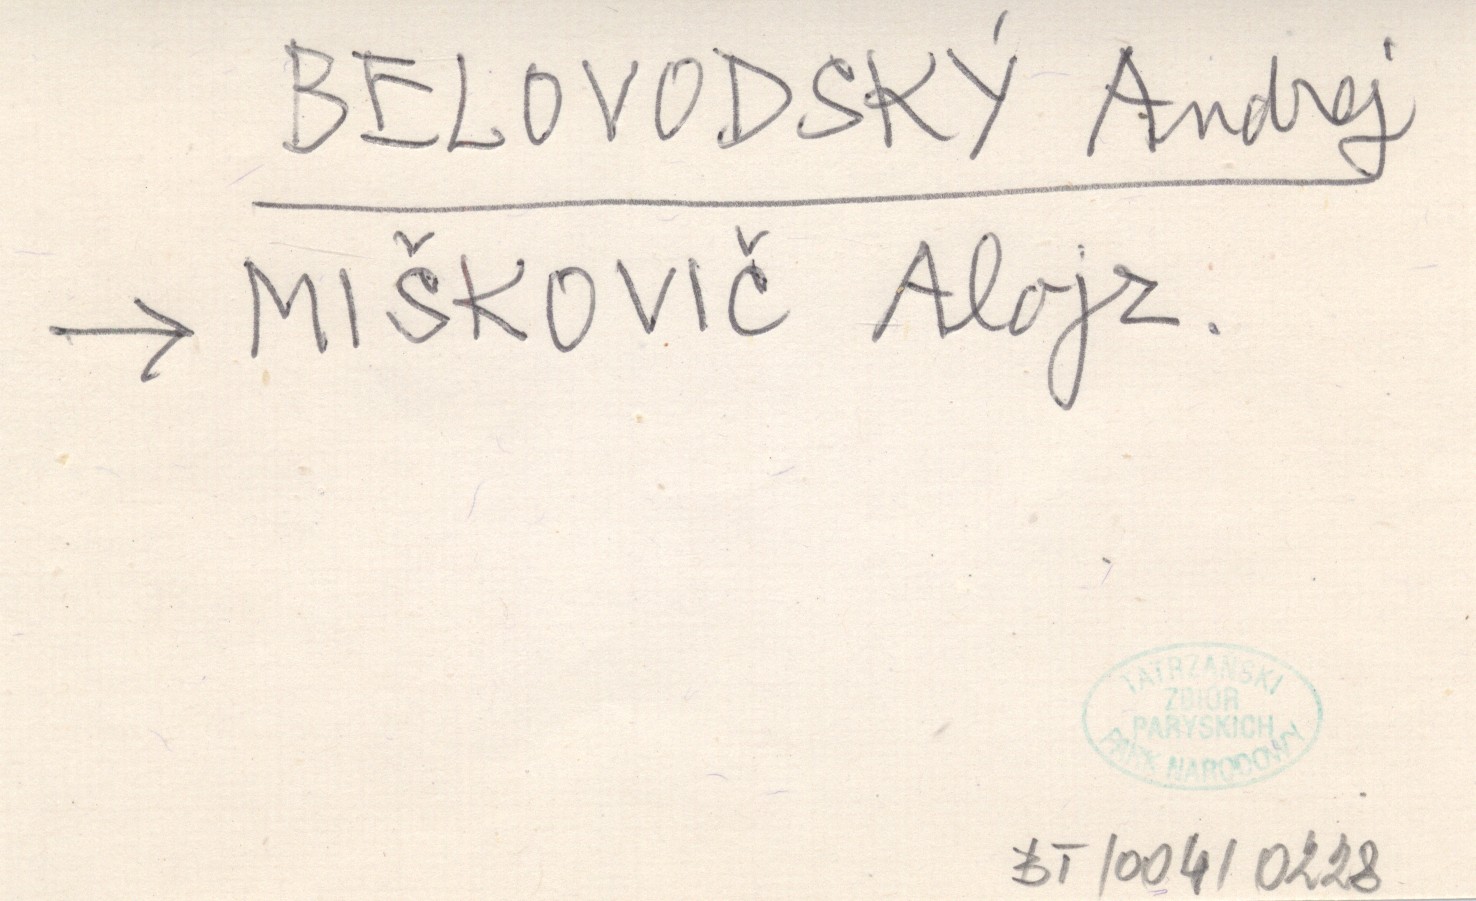 BELOVODSKÝ Andrej
→ MIŠKOVIČ Alojz.
TATRZAŃSKI
ZBIÓR
PARYSKICH
PARK NARODOWY
BT/004/0228